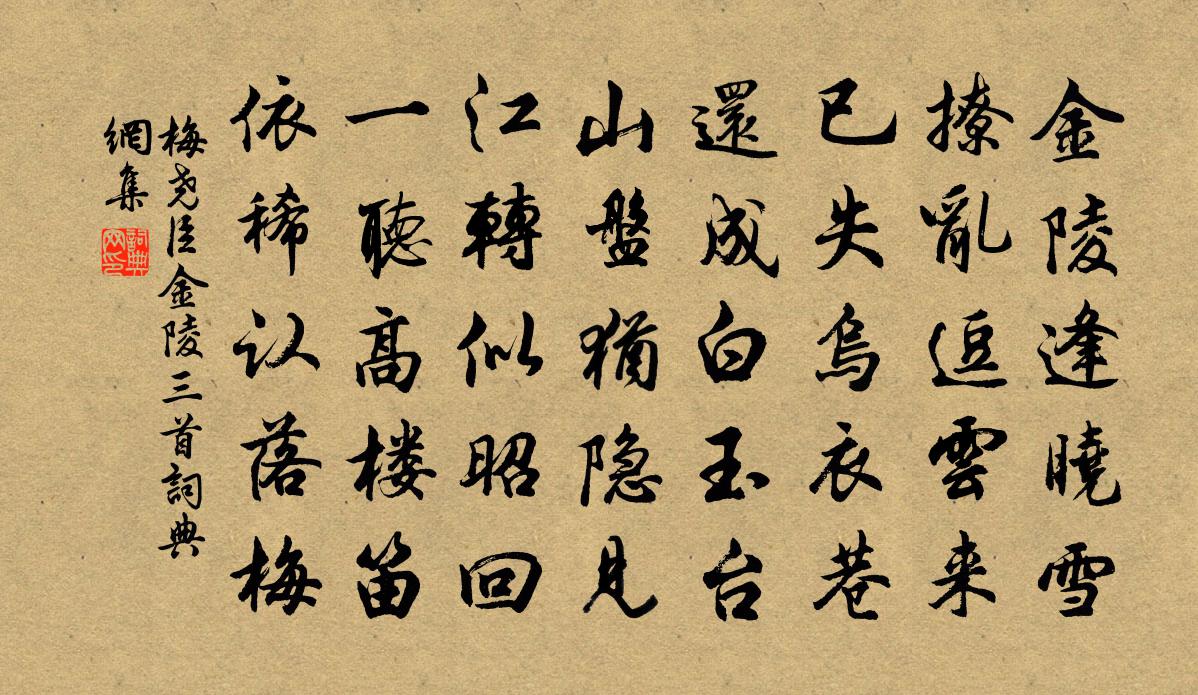 金陵逢曉雪
撩亂逗雲来
已失烏衣巷
還成白玉台
山盤猶隐見
江轉似昭回
一聽高楼笛
依稀认落梅
梅尧臣金陵三首詞典
網集
詞典
网印